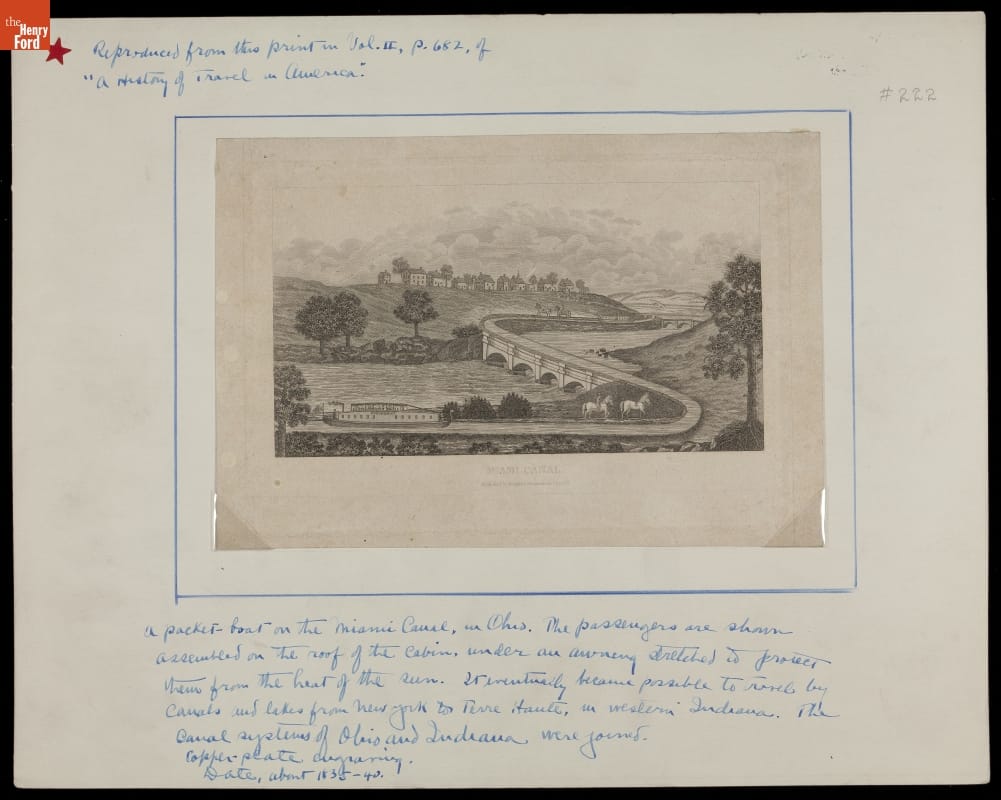 the
Henry
Ford
Reproduced from this print in Vol. II, p. 682, of
"A History of Travel in America".
#222
MIAMI CANAL
A packet-boat on the Miami Canal, in Ohio. The passengers are shown
assembled on the roof of the cabin, under an awning stretched to protect
them from the heat of the sun. It eventually became possible to travel by
canals and lakes from New-York to Terre Haute, in western Indiana. The
canal systems of Ohio and Indiana were joined.
Copper-plate engraving.
Date, about 1835-40.